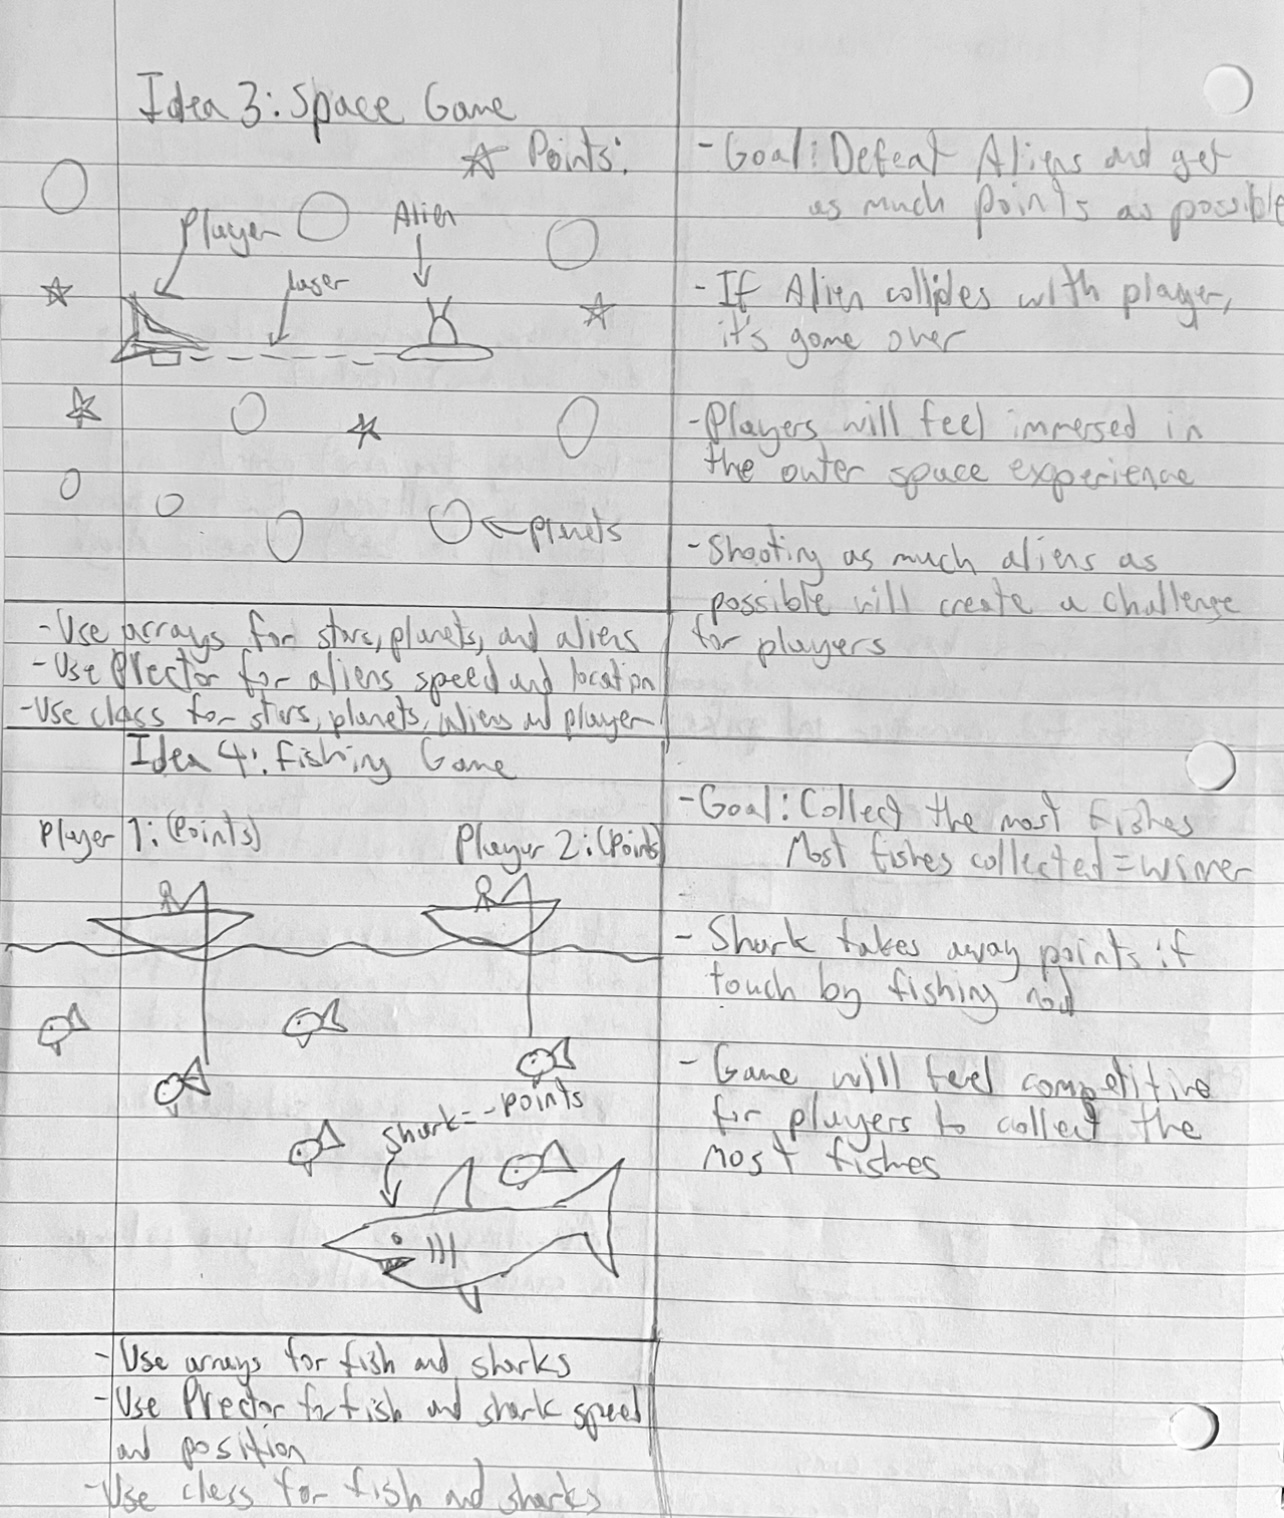 Idea 3: Space Game
☆ Points:
Player
Alien
laser
←planets
-Use arrays for stars, planets, and aliens
-Use PVector for aliens speed and location
-Use class for stars, planets, aliens and player
- Goal: Defeat Aliens and get
as much points as possible
- If Alien collides with player,
it's game over
-Players will feel immersed in
the outer space experience
- Shooting as much aliens as
possible will create a challenge
for players
Idea 4: Fishing Game
Player 1: (Points)
Player 2: (Points)
Shark = - points
- Use arrays for fish and sharks
- Use PVector for fish and shark speed
and position
-Use class for fish and sharks
-Goal: Collect the most fishes
Most fishes collected = winner
- Shark takes away points if
touch by fishing rod
- Game will feel competitive
for players to collect the
most fishes